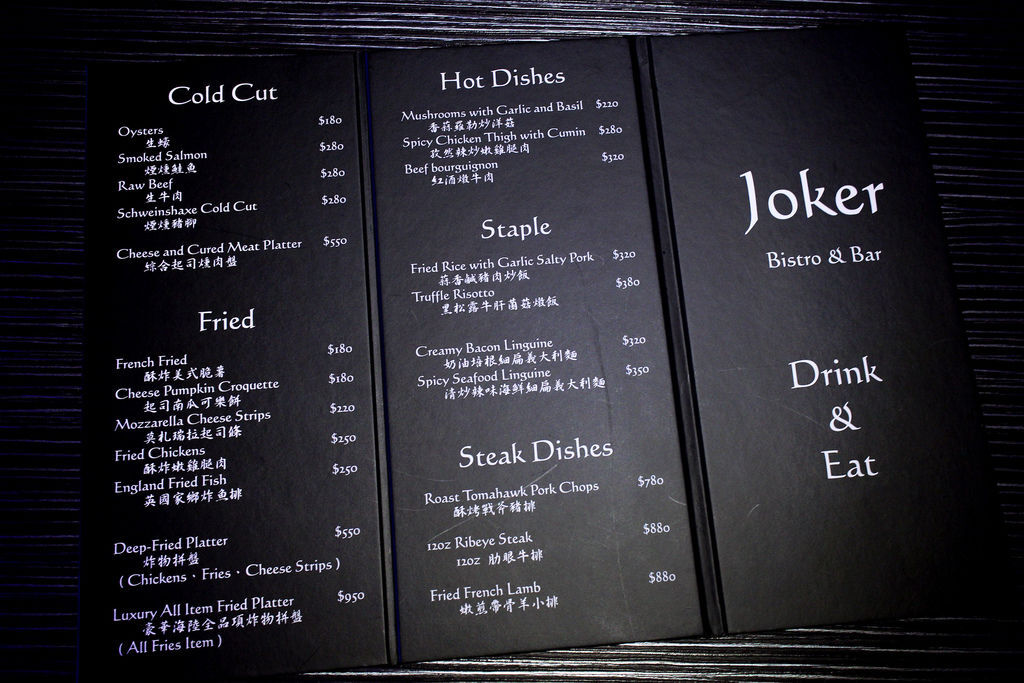 Cold Cut
Oysters $180
生蠔
Smoked Salmon $280
煙燻鮭魚
Raw Beef $280
生牛肉
Schweinshaxe Cold Cut $280
煙燻豬腳
Cheese and Cured Meat Platter $550
綜合起司燻肉盤
Fried
French Fried $180
酥炸美式脆薯
Cheese Pumpkin Croquette $180
起司南瓜可樂餅
Mozzarella Cheese Strips $220
莫札瑞拉起司條
Fried Chickens $250
酥炸嫩雞腿肉
England Fried Fish $250
英國家鄉炸魚排
Deep-Fried Platter $550
炸物拼盤
( Chickens、Fries、Cheese Strips )
Luxury All Item Fried Platter $950
豪華海陸全品項炸物拼盤
( All Fries Item )
Hot Dishes
Mushrooms with Garlic and Basil $220
香蒜羅勒炒洋菇
Spicy Chicken Thigh with Cumin $280
孜然辣炒嫩雞腿肉
Beef bourguignon $320
紅酒燉牛肉
Staple
Fried Rice with Garlic Salty Pork $320
蒜香鹹豬肉炒飯
Truffle Risotto $380
黑松露牛肝菌菇燉飯
Creamy Bacon Linguine $320
奶油培根細扁義大利麵
Spicy Seafood Linguine $350
清炒辣味海鮮細扁義大利麵
Steak Dishes
Roast Tomahawk Pork Chops $780
酥烤戰斧豬排
12oz Ribeye Steak $880
12oz 肋眼牛排
Fried French Lamb $880
嫩煎帶骨羊小排
Joker
Bistro & Bar
Drink
&
Eat